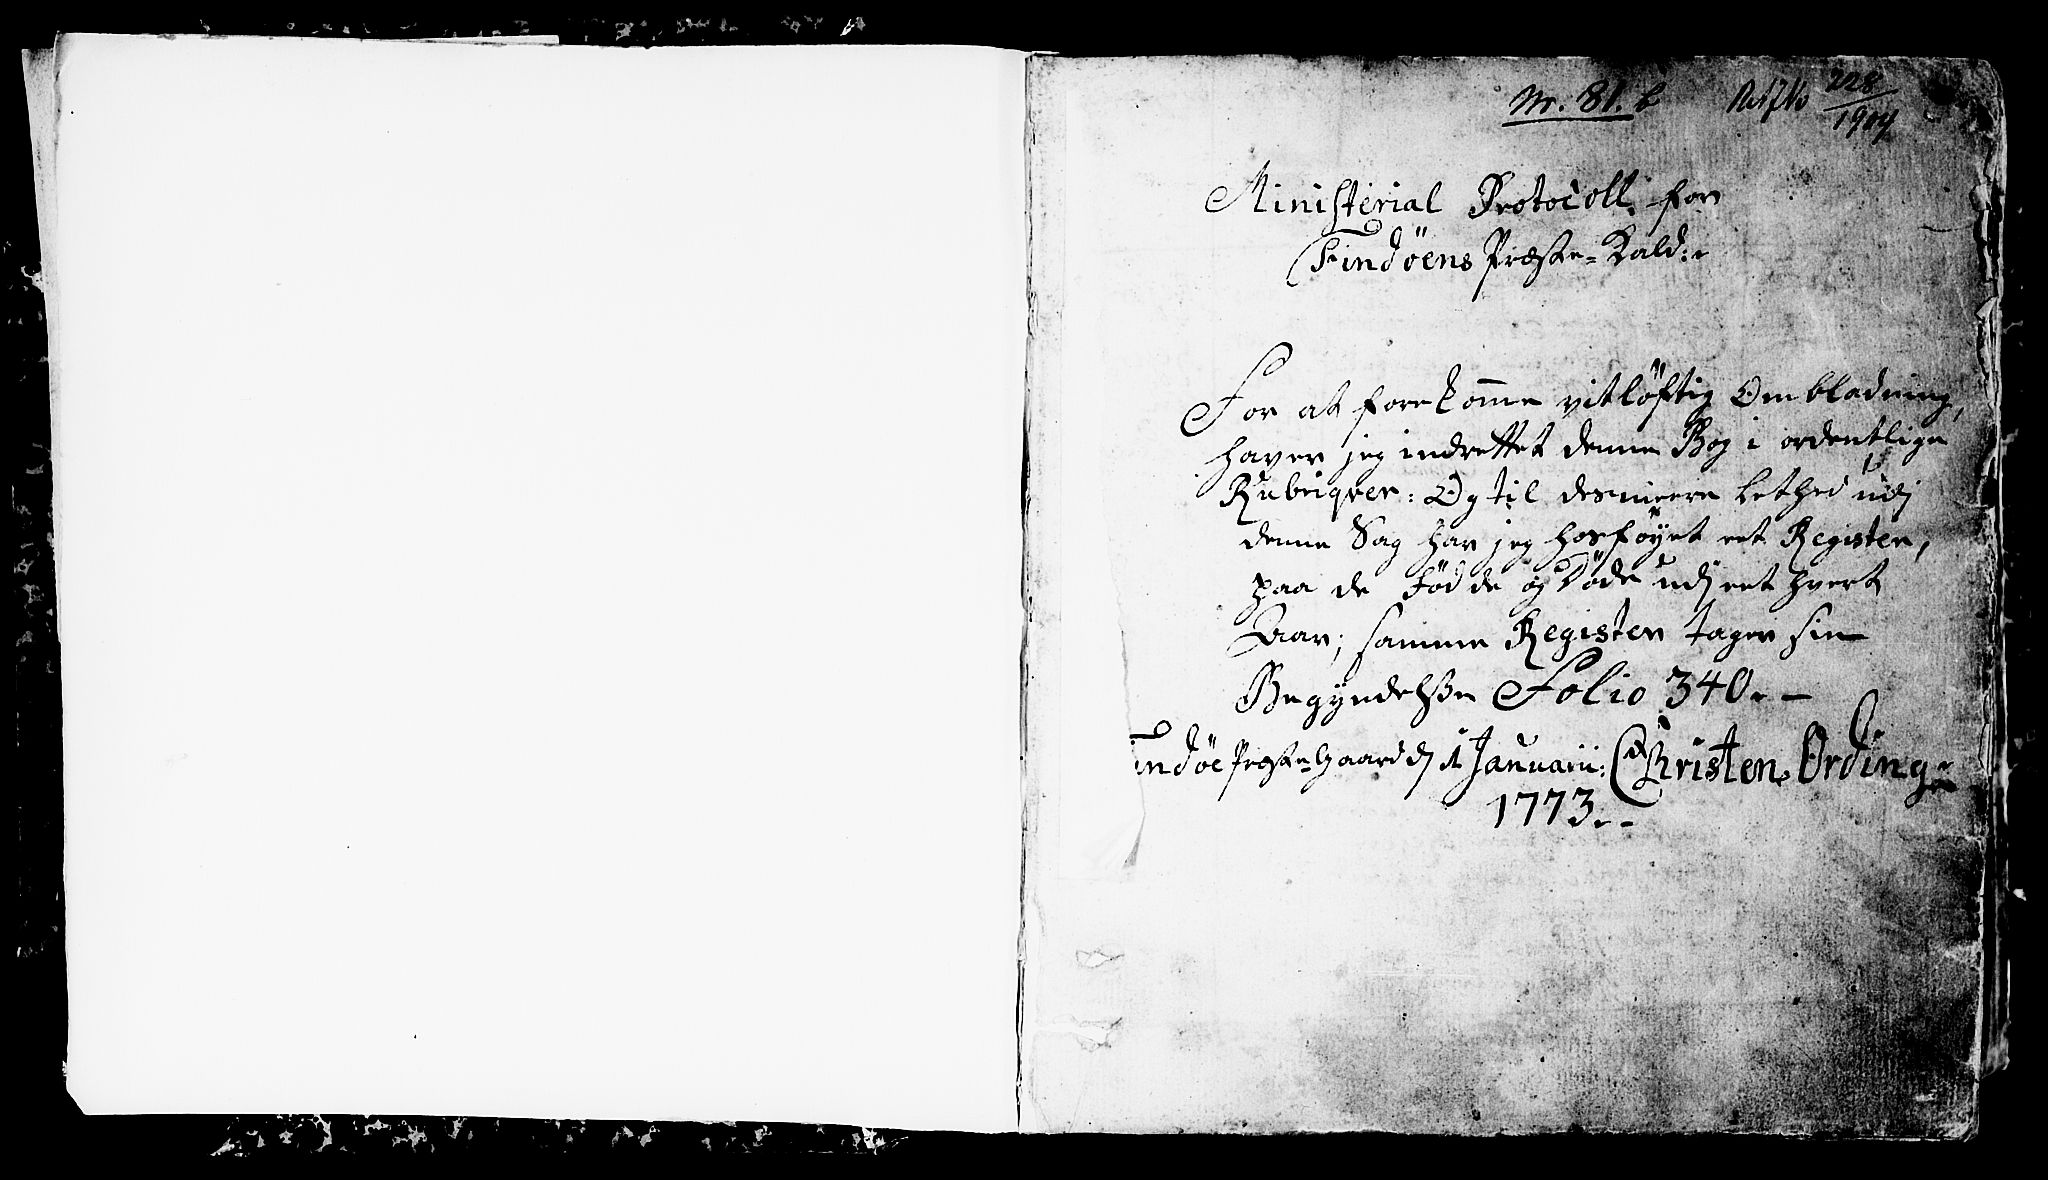 Nr. 81. b 228/1904
Ministerial Protocoll for
Findöens Præste-Kald:
For at forekomme vitlöftig Ombladning,
haver jeg indrettet denne Bog i ordentlige
Rubriqver: Og til desmeere Lethed udj
denne Sag har jeg hosföyet eet Register,
paa de Födde og Döde udj eet hvert
Aar; samme Register tager sin
Begyndelse Folio 340.
Findöe Præste-Gaard d 1 Januarii: Christen Ording
1773.